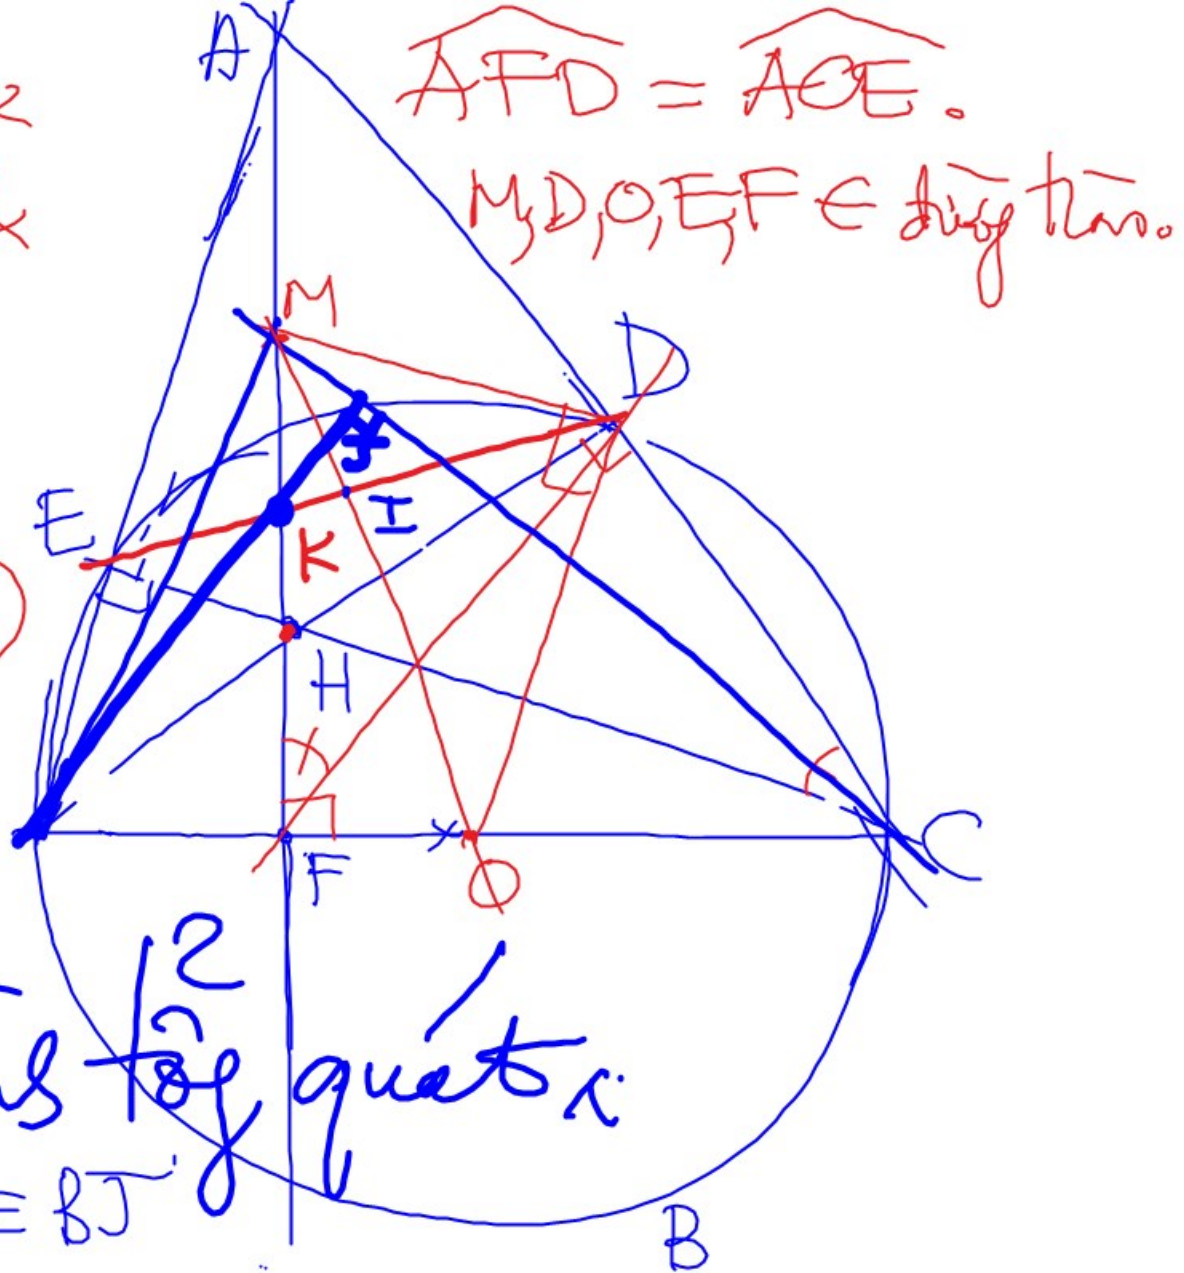 A
AFD = ACE.
M,D,O,E,F ∈ đường tròn.
M
D
J
E
I
K
H
F
O
C
tổng quát
≡ BJ
B